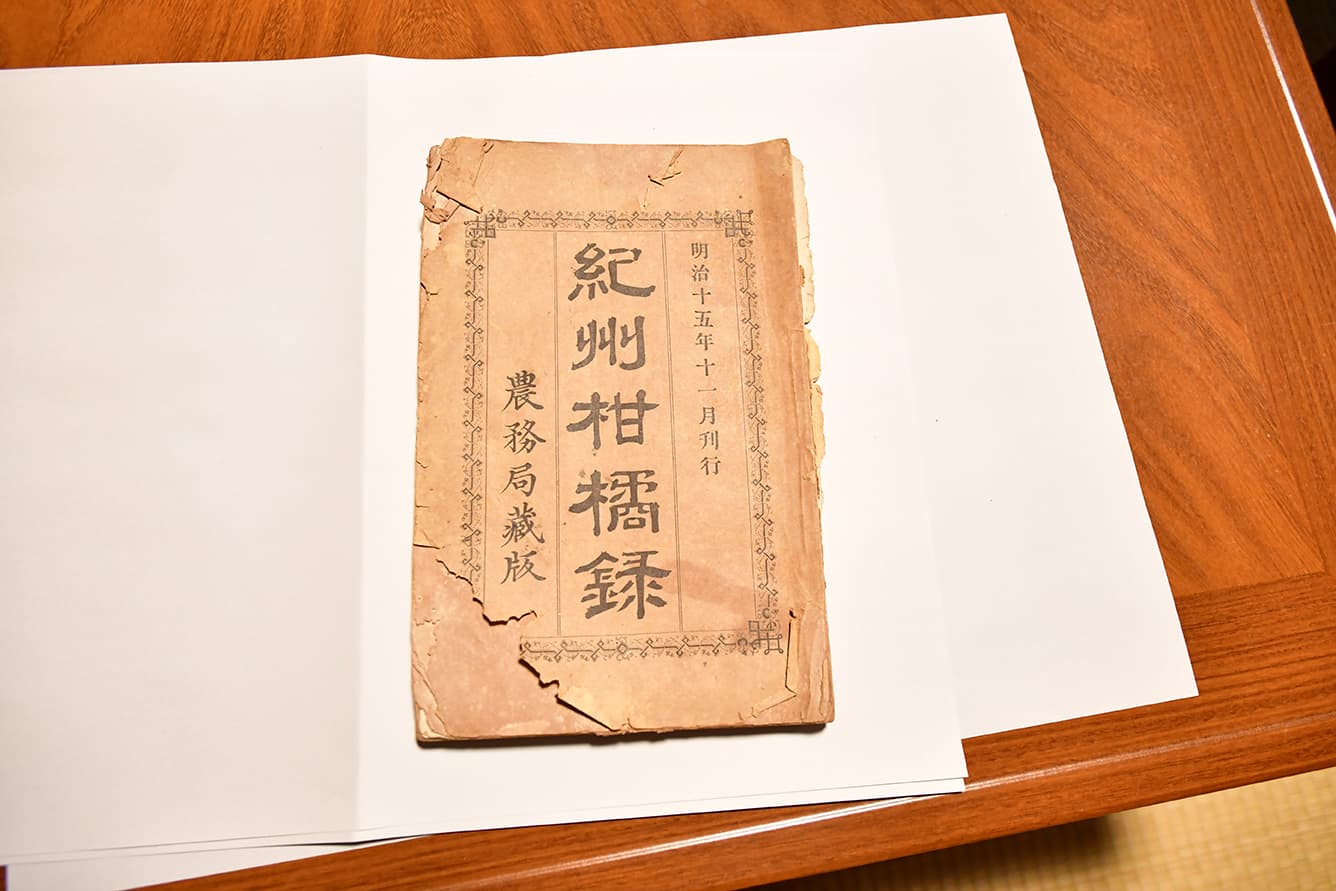 明治十五年十一月刊行
紀州柑橘錄
農務局藏版